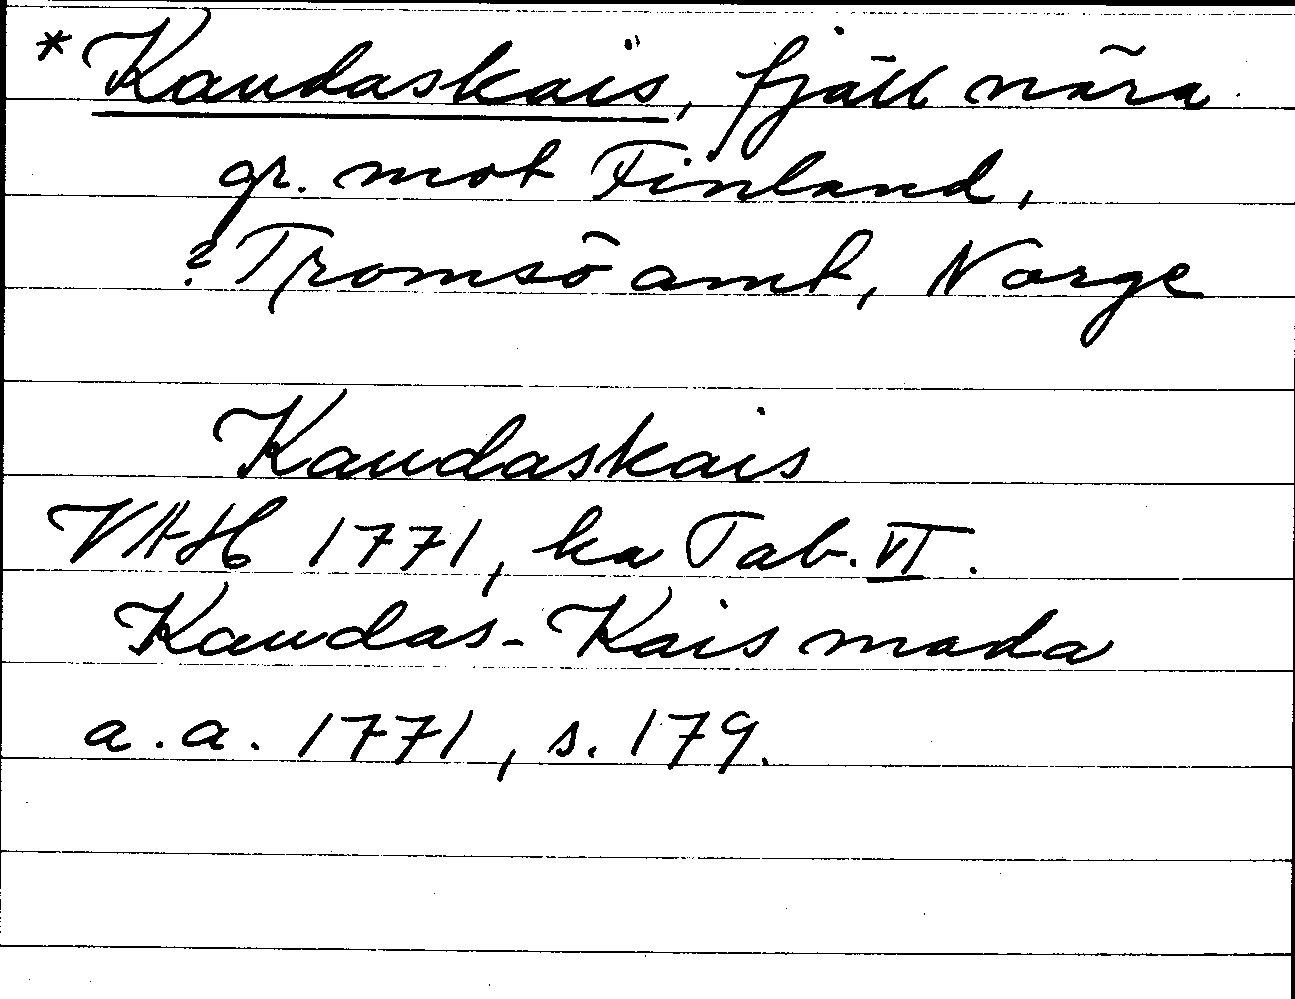 * Kaudaskais, fjäll nära
gr. mot Finland,
? Tromsö amt, Norge
Kaudaskais
VAH 1771, ka Tab. VI.
Kaudas-Kais mada
a.a. 1771, s. 179.